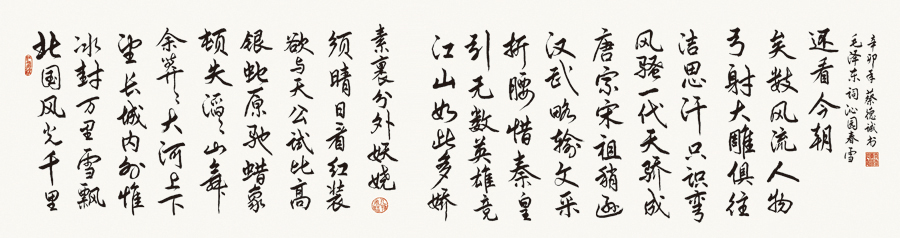 北国风光千里
冰封万里雪飘
望长城内外惟
余莽々大河上下
顿失滔々山舞
银蛇原驰蜡象
欲与天公试比高
须晴日看红装
素裹分外妖娆
江山如此多娇
引无数英雄竞
折腰惜秦皇
汉武略输文采
唐宗宋祖稍逊
风骚一代天骄成
洁思汗只识弯
弓射大雕俱往
矣数风流人物
还看今朝
毛泽东词沁园春雪
辛卯年蔡德诚书